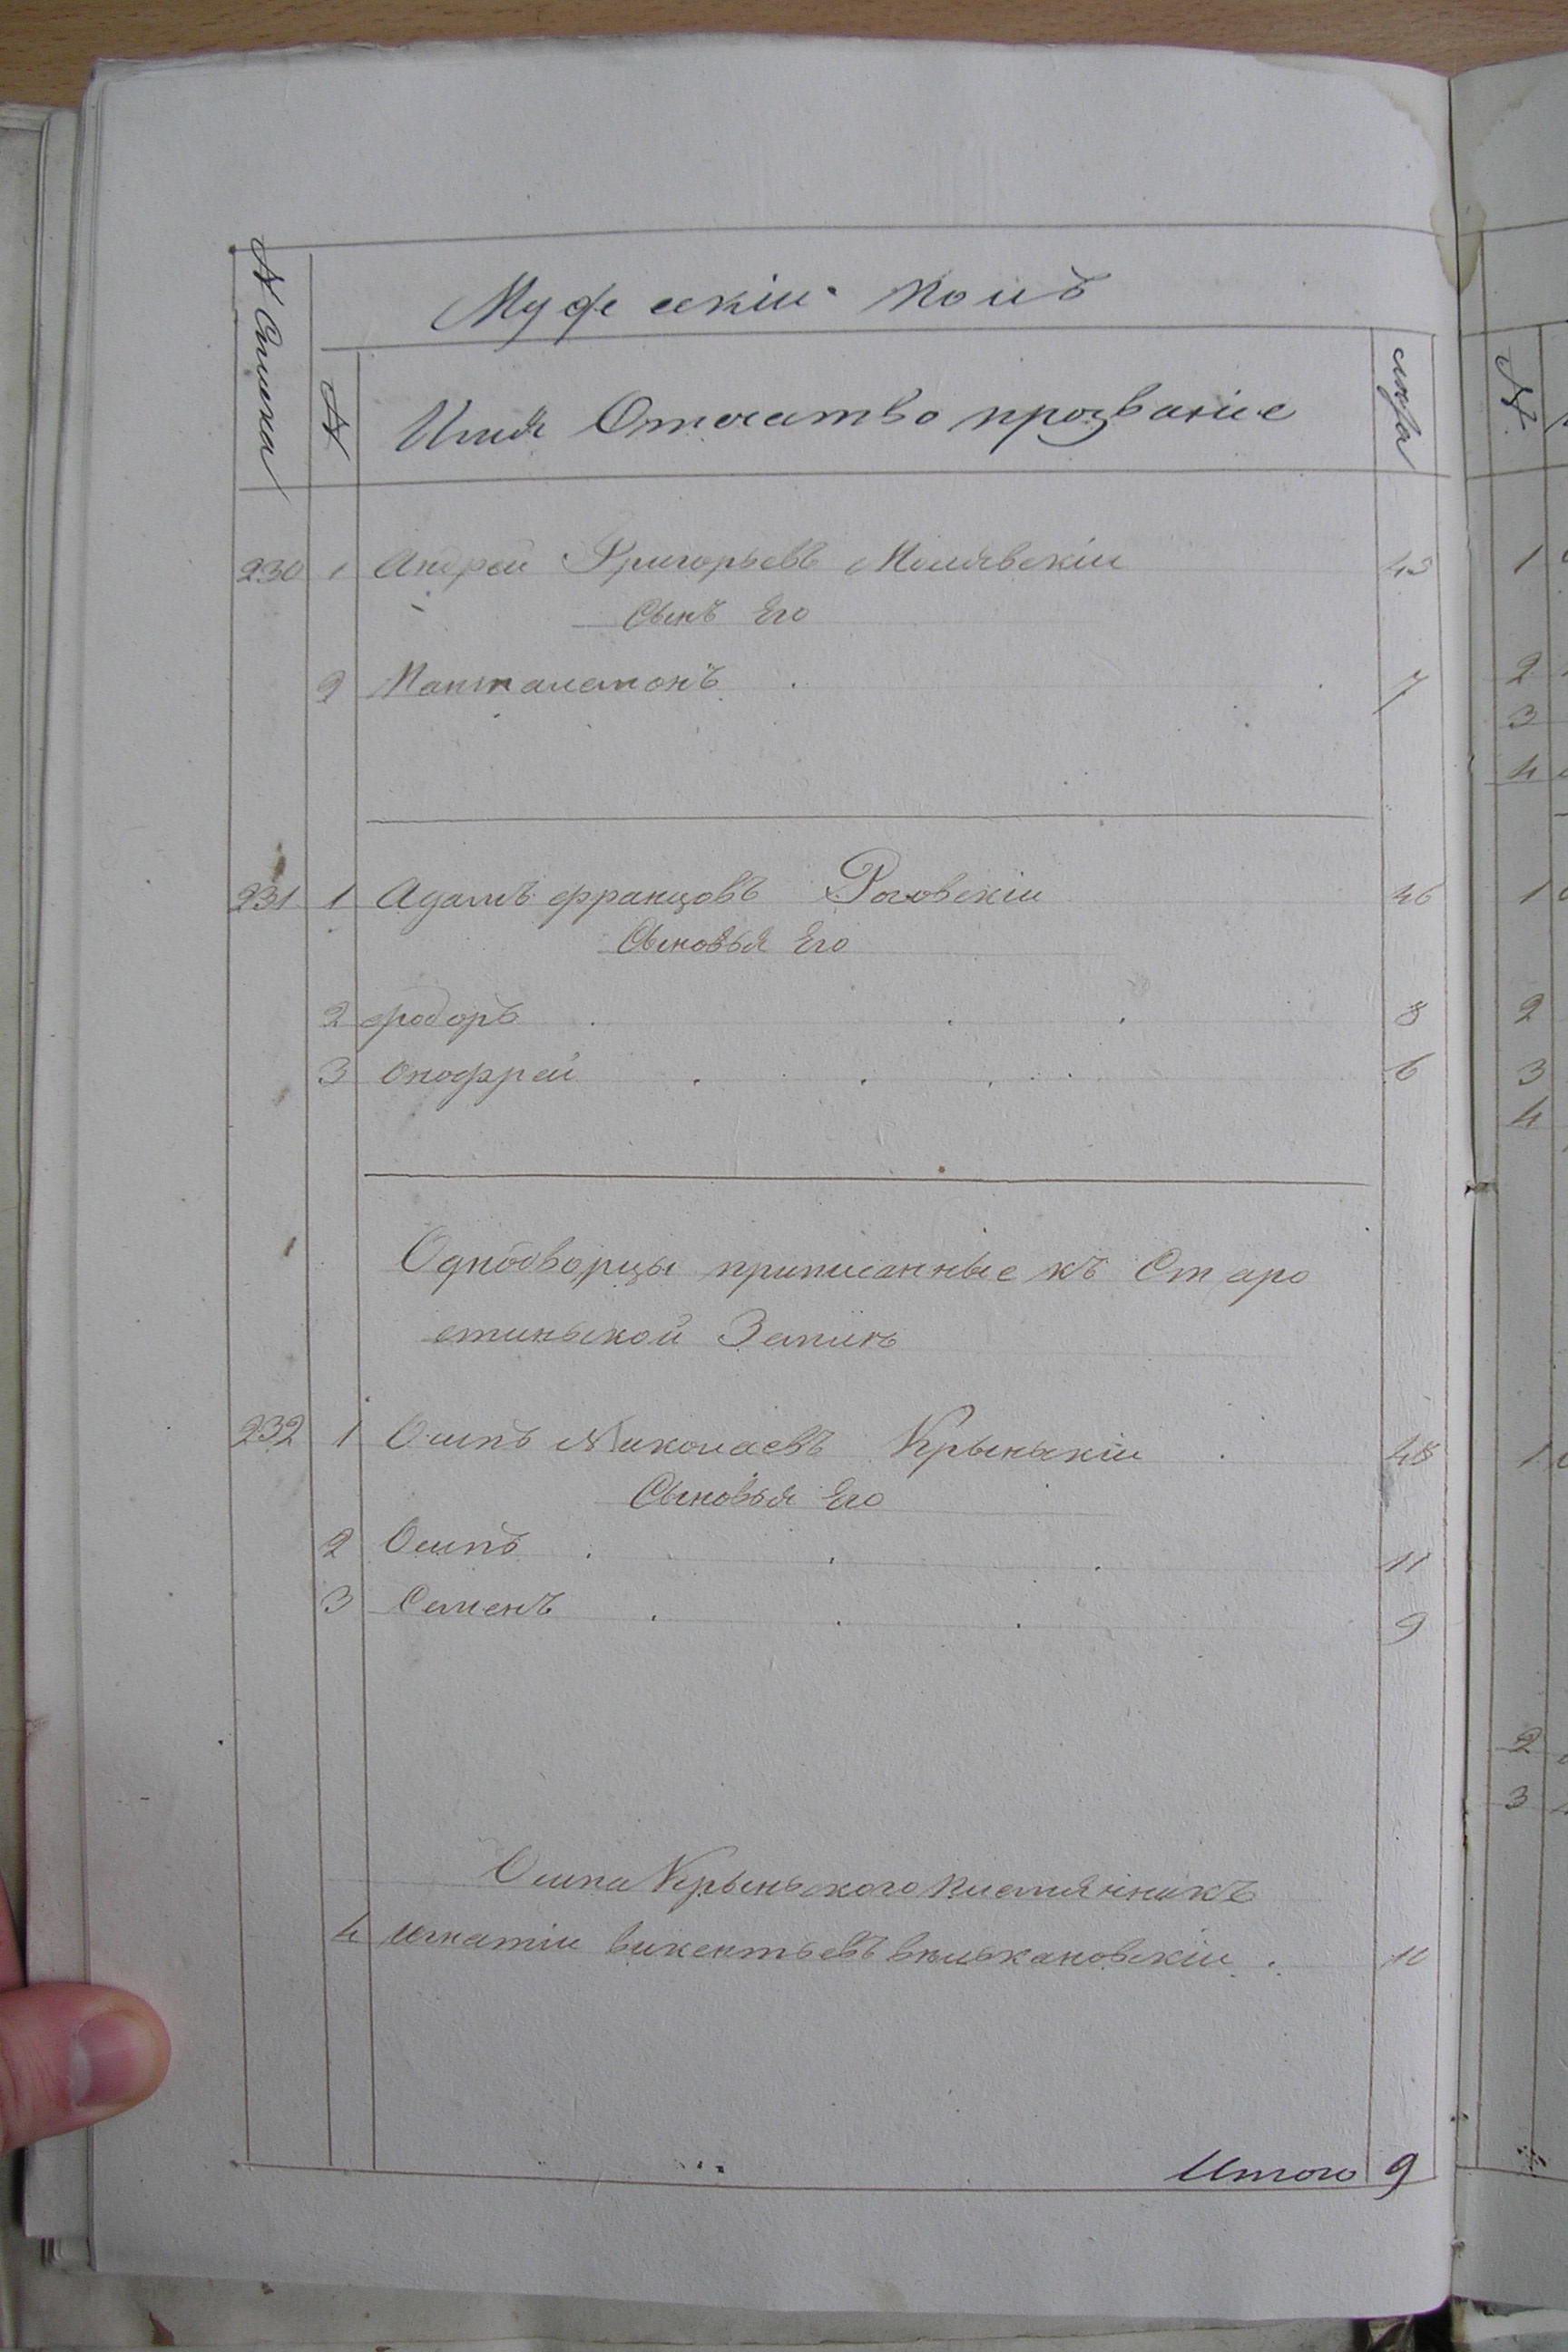 № Списка
Мужескій полъ
№
Имя Отечатво прозваніе
лѣта
230 1 Андрей Григорьевъ 43
Сынъ Его
2 Панталемонъ 7
231 1 Адамъ францовъ Роговскіи 46
Сыновья Его
2 фіодоръ 8
3 Онофрей 6
Однодворцы приписанные къ Старо
синьской Земли
232 1 Осипъ Николаевъ Крыньскіи 48
Сыновья Его
2 Осипъ 11
3 Семенъ 9
Осипа Крыньского племянникъ
4 Игнатіи викентьевъ 10
Итого 9
№
1
2
3
4
1
2
3
4
1
2
3